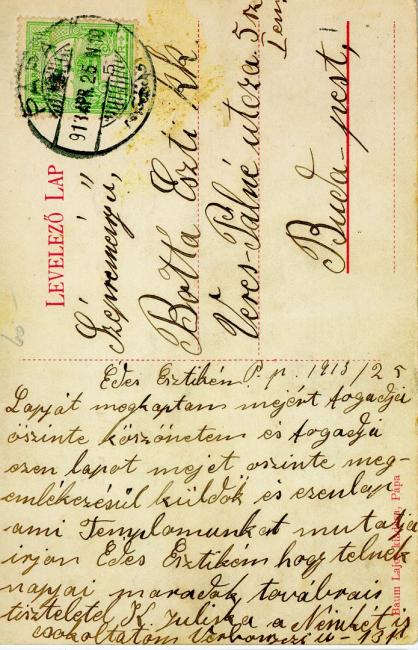 LEVELEZŐ LAP
PÁPA
913 APR. 25
Szépreményü,
Botka Eszti kk
Veres-Pálné utcza 5 sz
Buda-pest,
Édes Esztikém P. p. 1913/25
Lapját megkaptam mejért fogadja
öszinte köszönetem és fogadja
ezen lapot mejet öszinte meg-
emlékezésül küldök és ezenlap
ami Templomunkat mutatja
irjon Édes Esztikém hogy telnek
napjai maradok továbrais
tisztelete K Juliska a Nénikét is
csokoltatom
Baum Lajos, Pápa